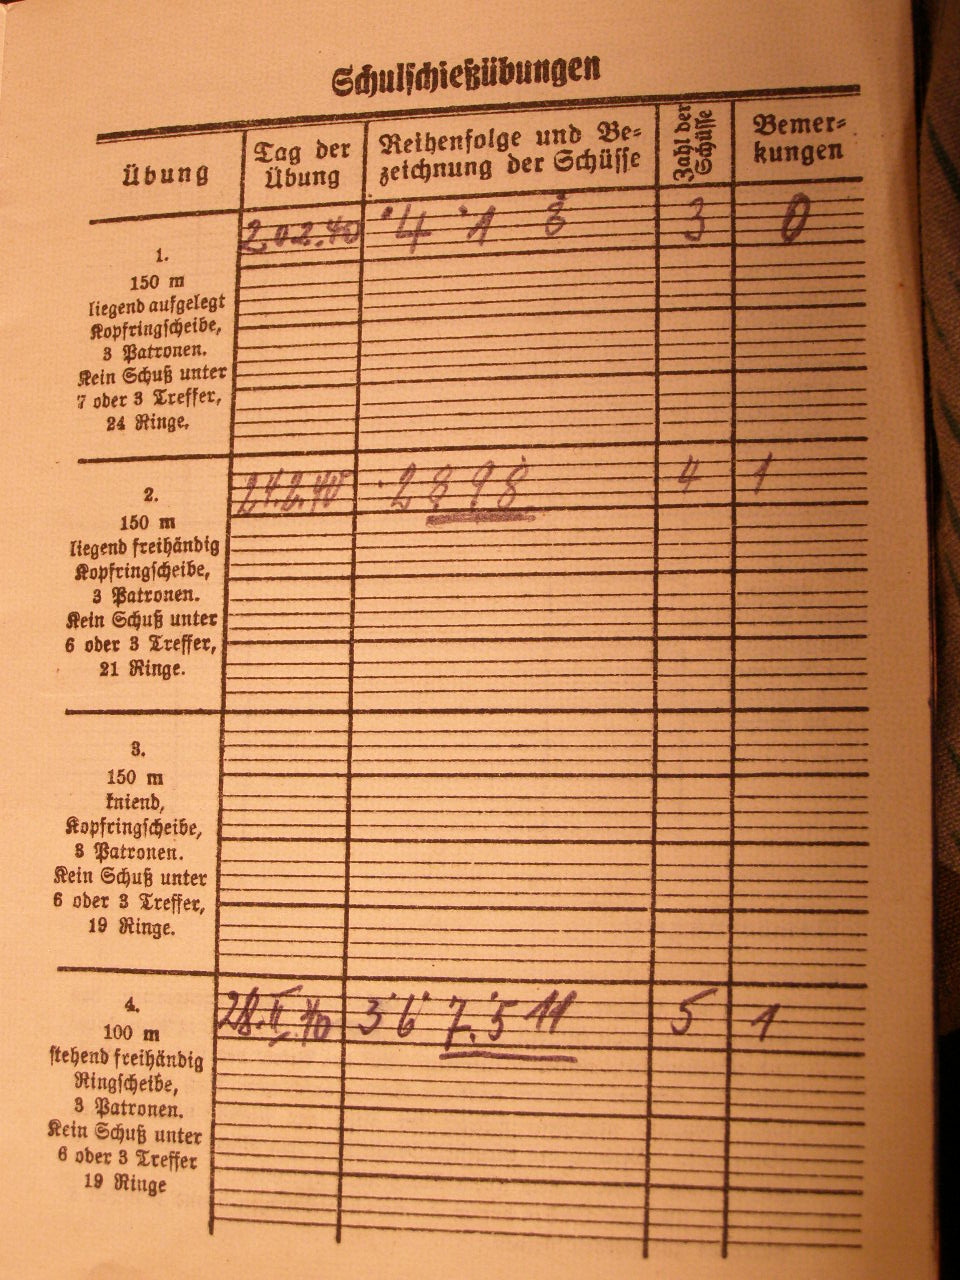 Schulschießübungen
Übung
Tag der
Übung
Reihenfolge und Be-
zeichnung der Schüsse
Zahl der
Schüsse
Bemer-
kungen
1.
150 m
liegend aufgelegt
Kopfringscheibe,
3 Patronen.
Kein Schuß unter
7 oder 3 Treffer,
24 Ringe.
20.2.40 4 1 8 3 0
2.
150 m
liegend freihändig
Kopfringscheibe,
3 Patronen.
Kein Schuß unter
6 oder 3 Treffer,
21 Ringe.
24.2.40 2 8 9 8 4 1
3.
150 m
kniend,
Kopfringscheibe,
3 Patronen.
Kein Schuß unter
6 oder 3 Treffer,
19 Ringe.
4.
100 m
stehend freihändig
Ringscheibe,
3 Patronen.
Kein Schuß unter
6 oder 3 Treffer
19 Ringe
28.II.40 3 6 7 5 11 5 1